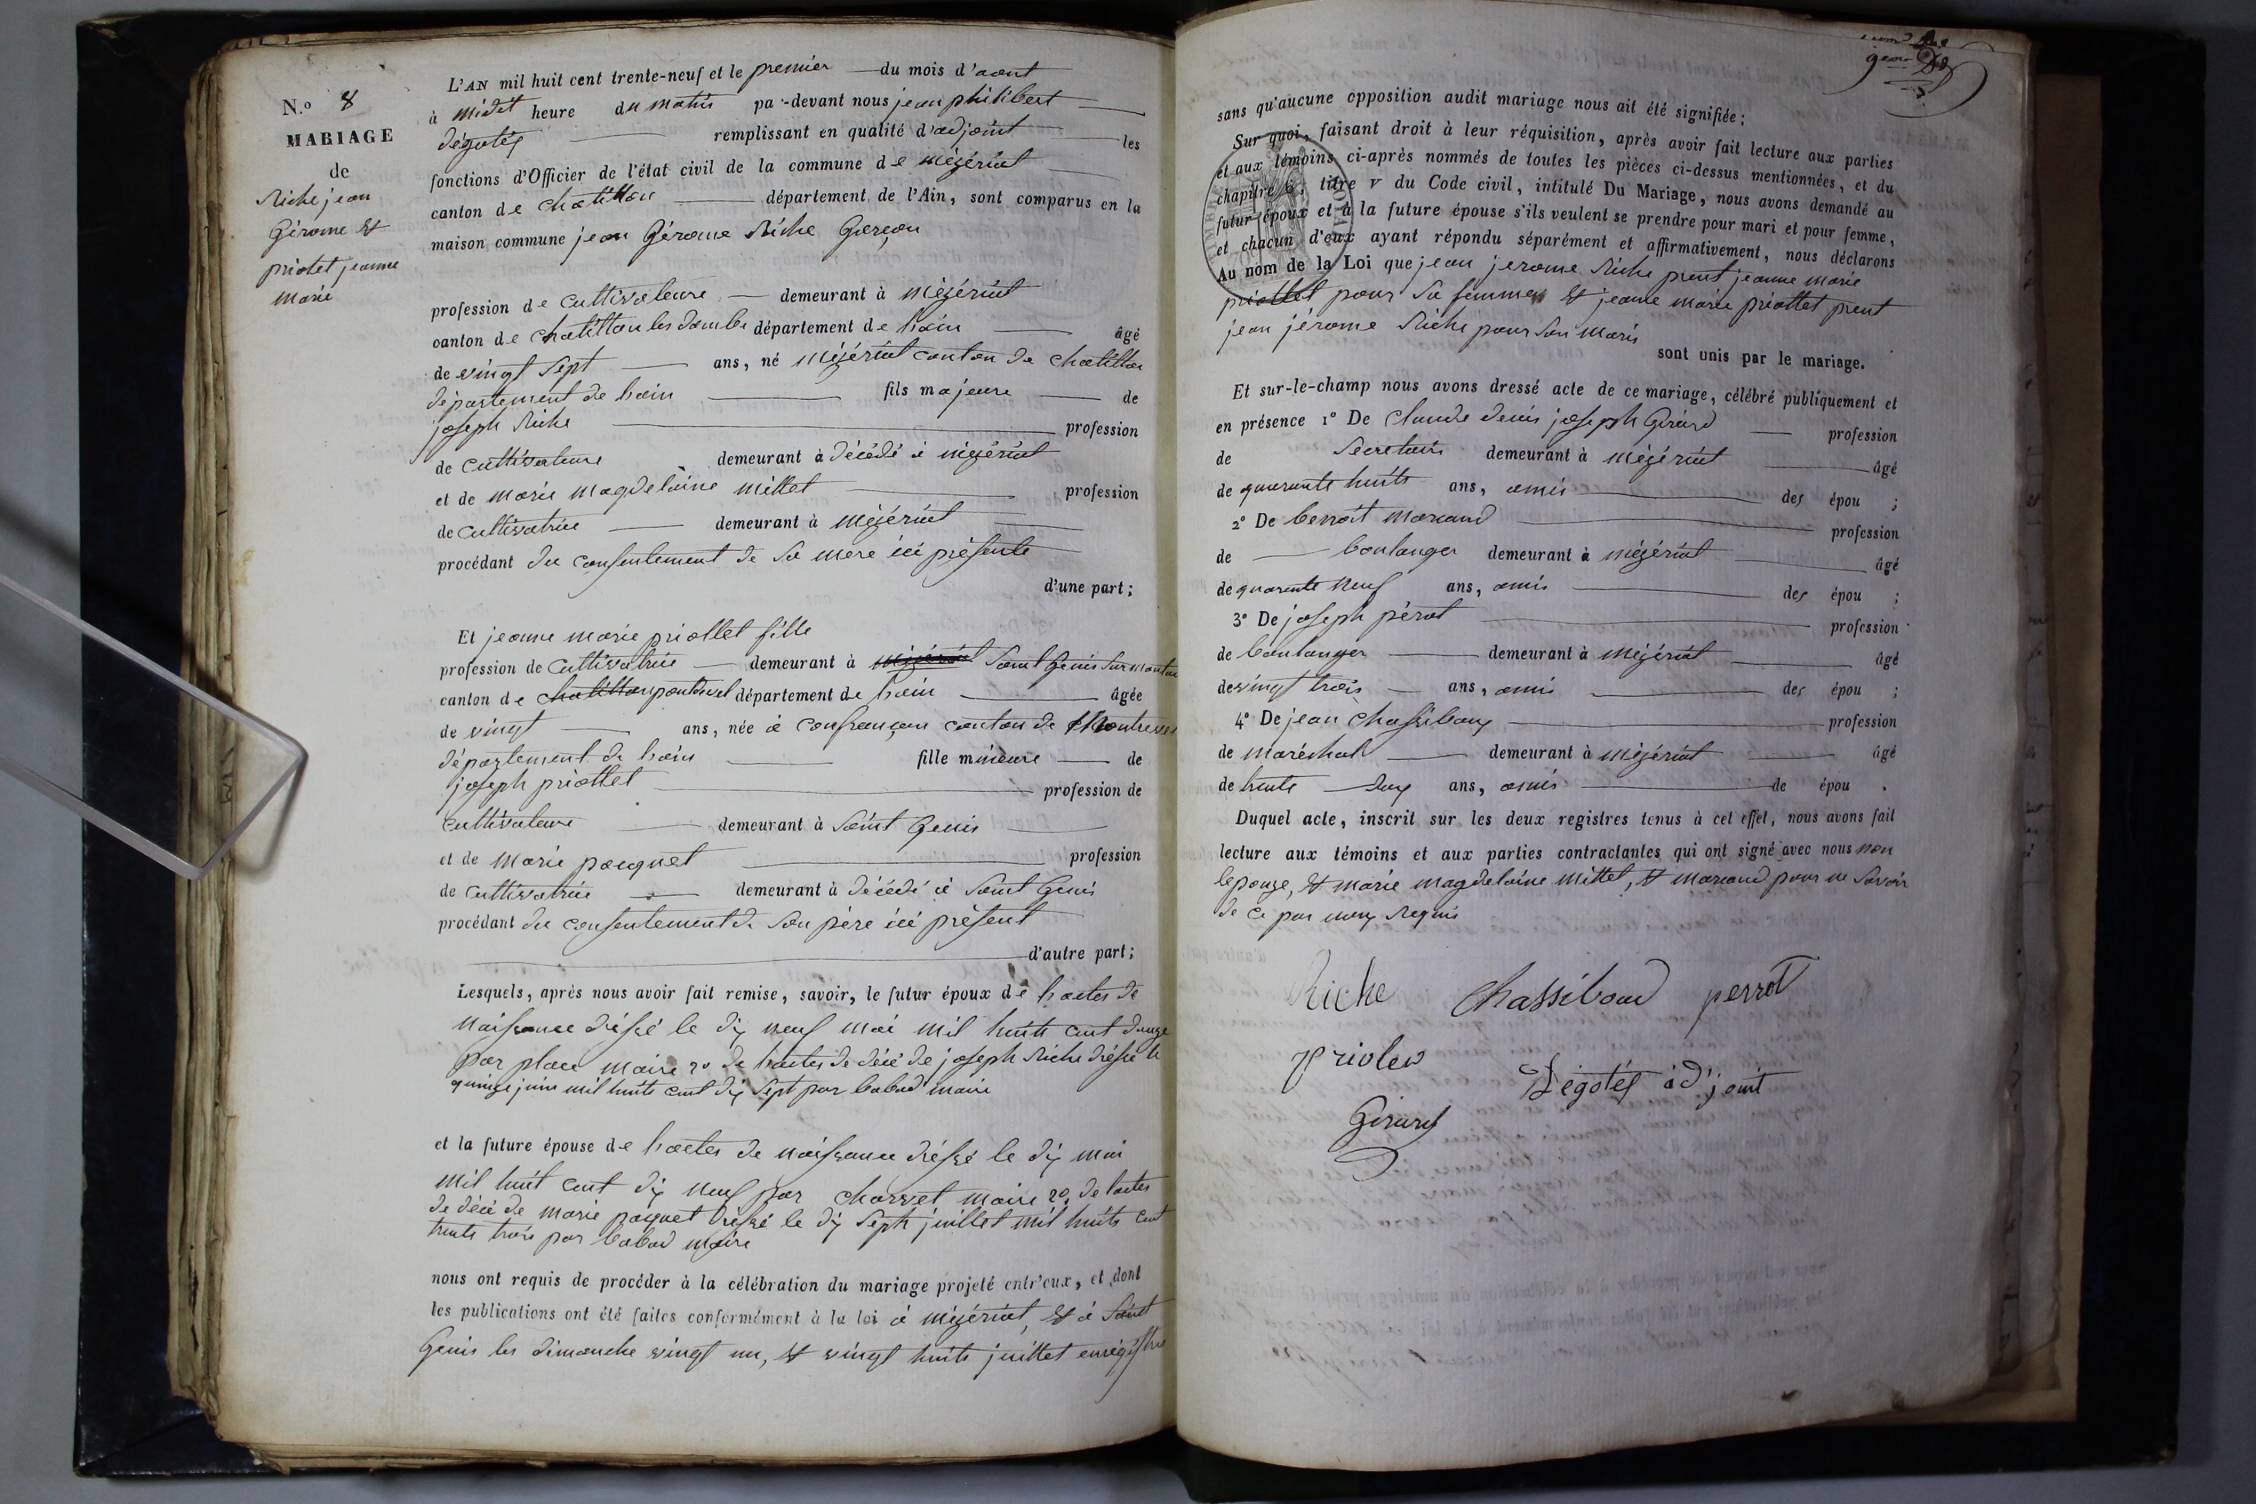 N.o 8
MARIAGE
de
Riche jean
Gérome et
priolet jeanne
marie
L'AN mil huit cent trente-neuf et le premier du mois d'aout
à midit heure du matin pa-devant nous jean philibert
Dégotés remplissant en qualité d'adjoint les
fonctions d'Officier de l'état civil de la commune de mézériat
canton de chatillon département de l'Ain, sont comparus en la
maison commune jean Gérome Riche Garçon
profession de cultivateure demeurant à mézériat
canton de chatillon les dombe département de hain âgé
de vingt sept ans, né mézériat canton de chatillon
département de hain fils majeure de
joseph Riche profession
de cultivateure demeurant à décédé à mézériat
et de marie magdelaine millet profession
de cultivatrice demeurant à mézériat
procédant du consentement de sa mere ici présente
d'une part;
Et jeanne marie priollet fille
profession de cultivatrice demeurant à mézériat Saint Genis sur manton
canton de chatillon pontdevel département de hain âgée
de vingt ans, née à confrançon canton de Montrevel
département de hain fille mineure de
joseph priollet profession de
cultivateure demeurant à Saint Genis
et de marie paquet profession
de cultivatrice demeurant à décédé à Saint Genis
procédant du consentement de son père ici présent
d'autre part;
Lesquels, après nous avoir fait remise, savoir, le futur époux de hactes de
naissance dréssé le dix neuf mai mil huits cent douze
par place maire 2o de hactes de décé de joseph Riche dréssé le
quinze juin mil huits cent dix sept par babad maire
et la future épouse de hactes de naissance dréssé le dix mai
mil huit cent dix neuf par charvet maire 2o de hactes
de décé de marie paquet dréssé le dix seph juillet mil huits cent
trente trois par babad maire
nous ont requis de procéder à la célébration du mariage projeté entr'eux, et dont
les publications ont été faites conformément à la loi à mézériat, et à Saint
Genis les dimanche vingt un, et vingt huits juillet enrégistre
sans qu'aucune opposition audit mariage nous ait été signifiée;
Sur quoi, faisant droit à leur réquisition, après avoir fait lecture aux parties
et aux témoins ci-après nommés de toutes les pièces ci-dessus mentionnées, et du
chapitre 6, titre v du Code civil, intitulé Du Mariage, nous avons demandé au
futur époux et à la future épouse s'ils veulent se prendre pour mari et pour femme,
et chacun d'eux ayant répondu séparément et affirmativement, nous déclarons
Au nom de la Loi que jean jerome Riche prent jeanne marie
priollet pour sa femme et jeanne marie priollet prent
jean jérome Riche pour son maris
sont unis par le mariage.
Et sur-le-champ nous avons dressé acte de ce mariage, célébré publiquement et
en présence 1° De claude denis joseph Girard profession
de Secretaire demeurant à mézériat âgé
de quarante huits ans, amis des épou ;
2° De benoit morand profession
de boulanger demeurant à mézériat âgé
de quarante neuf ans, amis des épou ;
3° De joseph pérot profession
de boulanger demeurant à mézériat âgé
de vingt trois ans, amis des épou ;
4° De jean chassiboux profession
de maréchal demeurant à mézériat âgé
de trente deux ans, amis de épou .
Duquel acte, inscrit sur les deux registres tenus à cet effet, nous avons fait
lecture aux témoins et aux parties contractantes qui ont signé avec nous non
lepouze, et marie magdelaine millet, et morand pour ne savoir
de ce par nous Requis
Riche chassiboud perrot
priolet
Dégotés adjoint
Girard